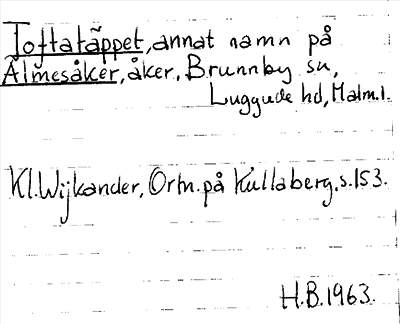 Toftatäppet, annat namn på
Älmesåker, åker, Brunnby sn,
Luggude hd, Malm.l.
Kl.Wijkander, Ortn. på Kullaberg, s.153.
H.B.1963.